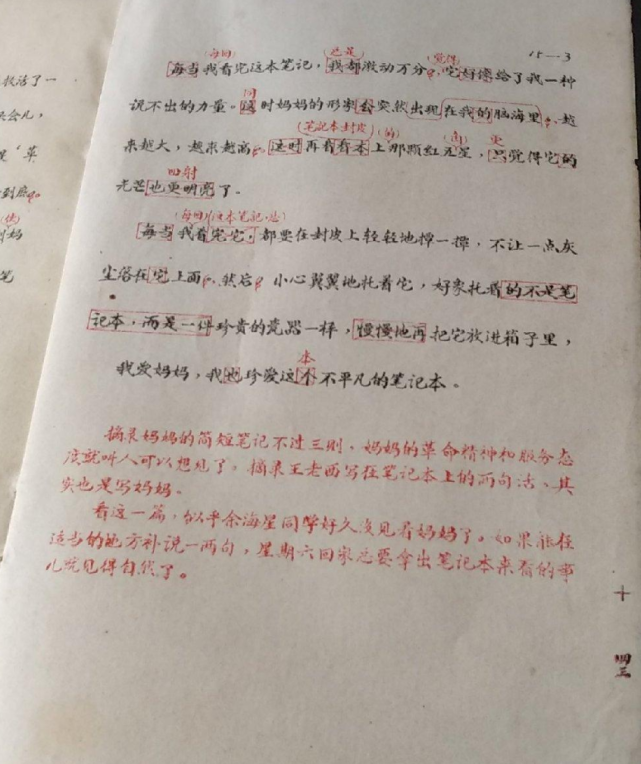 15—3
(每回) (总是) (觉得)
每当我看完这本笔记,我都激动万分,它好像给了我一种
说不出的力量。这时妈妈的形象会突然出现在我的脑海里,越
同
(笔记本封皮)(的) 更
来越大,越来越高。这时再看看本上那颗红五星,只觉得它的
四射
光芒也更明亮了。
(每回 这本笔记 总)
每当我看完它,都要在封皮上轻轻地撢一撢,不让一点灰
尘落在它上面,然后,小心翼翼地托着它,好象托着的不是笔
记本,而是一件珍贵的瓷器一样,慢慢地再把它放进箱子里,
本
我爱妈妈,我也珍爱这个不平凡的笔记本。
摘录妈妈的简短笔记不过三则,妈妈的革命精神和服务态
度就叫人可以想见了。摘录王老西写在笔记本上的两句话,其
实也是写妈妈。
看这一篇,似乎余海星同学好久没见着妈妈了。如果能在
适当的地方补说一两句,星期六回家总要拿出笔记本来看的事
儿就见得自然了。
十
四三
救活了一
会儿,
‘革
到底。
妈
笔